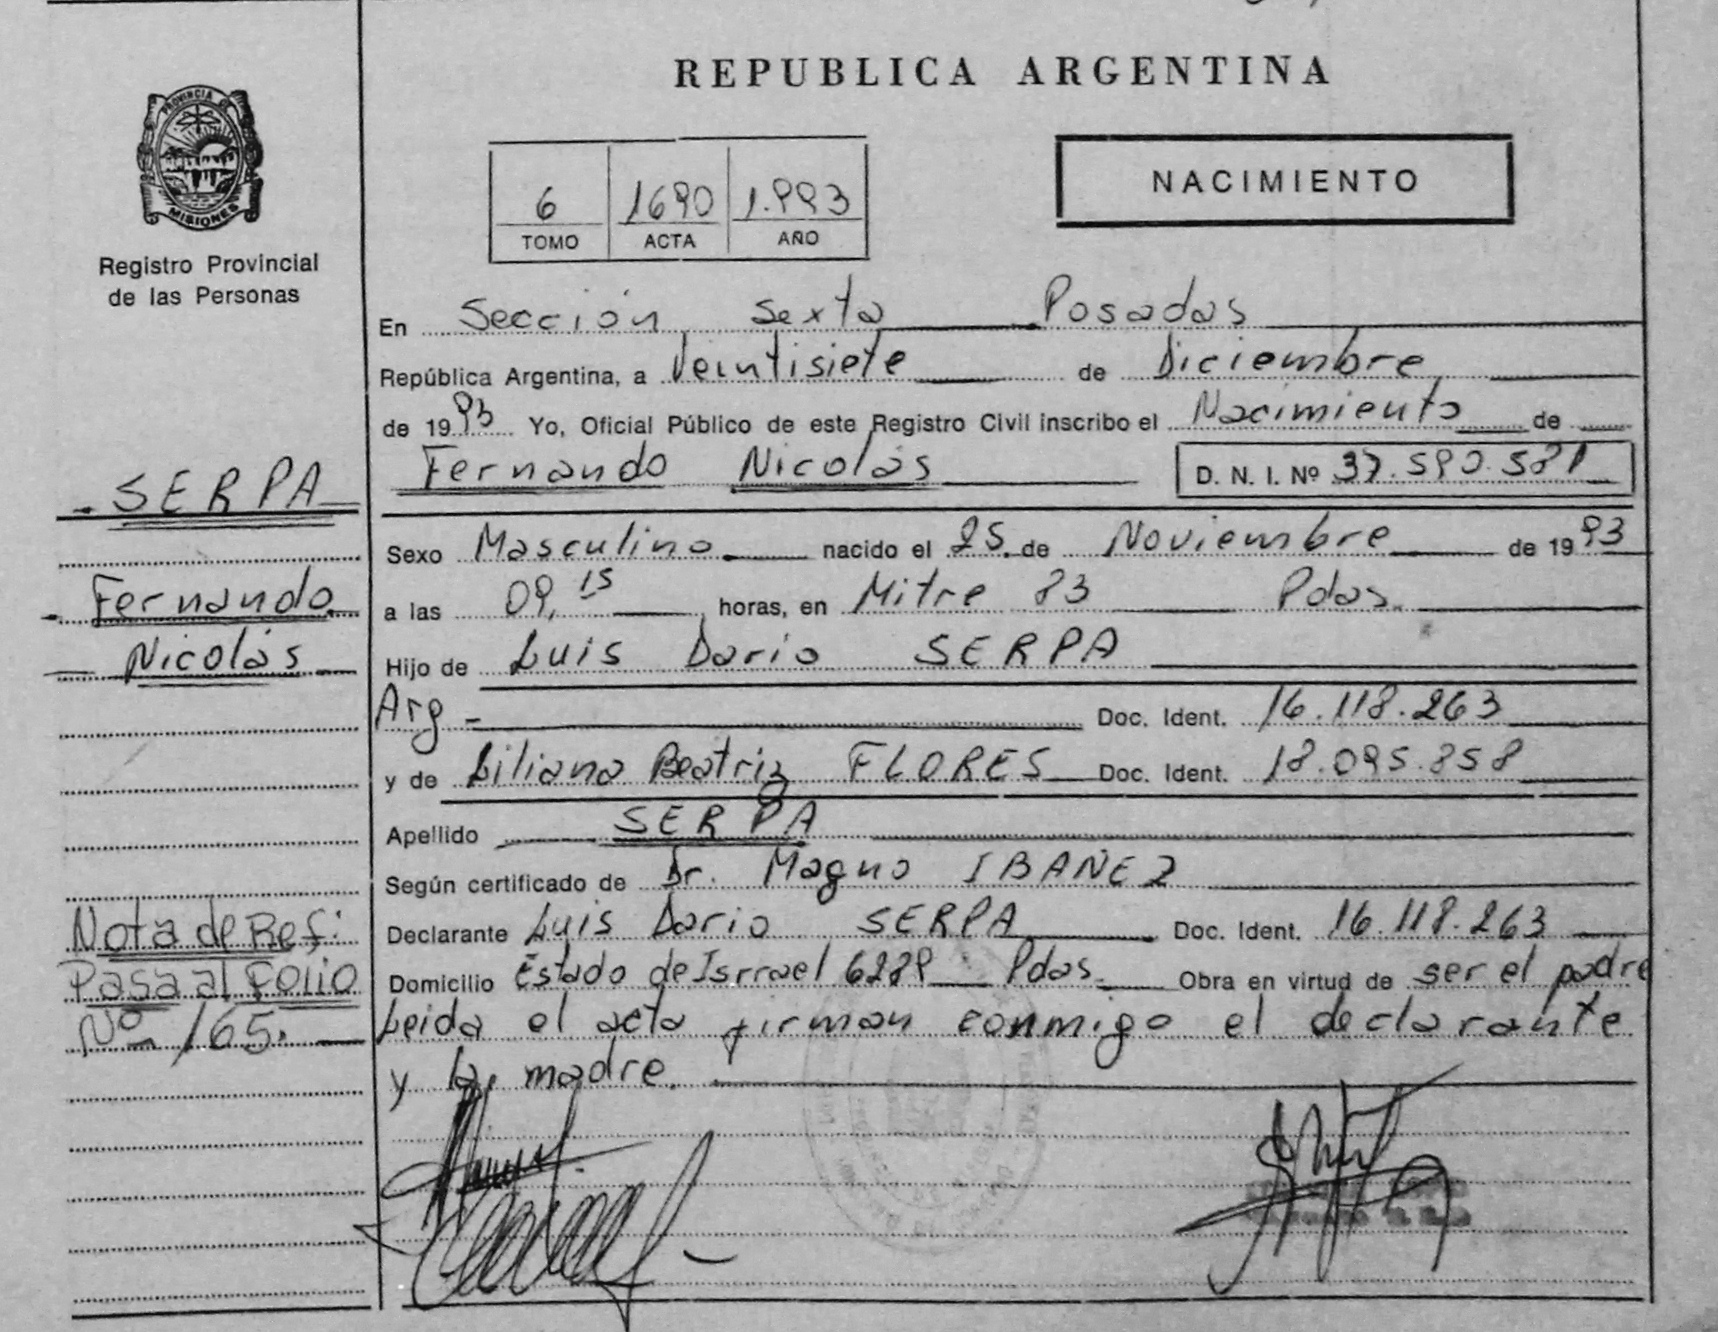 REPUBLICA ARGENTINA
PROVINCIA DE
MISIONES
Registro Provincial
de las Personas
6 1690 1.993
TOMO ACTA AÑO
NACIMIENTO
En Sección Sexta Posadas
República Argentina, a Veintisiete de Diciembre
de 1993 Yo, Oficial Público de este Registro Civil inscribo el Nacimiento de
Fernando Nicolás D. N. I. Nº 37.590.581
SERPA
Fernando
Nicolás
Sexo Masculino nacido el 25 de Noviembre de 1993
a las 09,15 horas, en Mitre 83 Pdas.
Hijo de Luis Dario SERPA
Arg Doc. Ident. 16.118.263
y de Liliana Beatriz FLORES Doc. Ident. 18.095.858
Apellido SERPA
Según certificado de Dr. Magno IBAÑEZ
Declarante Luis Dario SERPA Doc. Ident. 16.118.263
Domicilio Estado de Isrrael 6289 Pdas. Obra en virtud de ser el padre
Leida el acta firman conmigo el declarante
y la madre.
Nota de Ref:
Pasa al Folio
Nº 165.